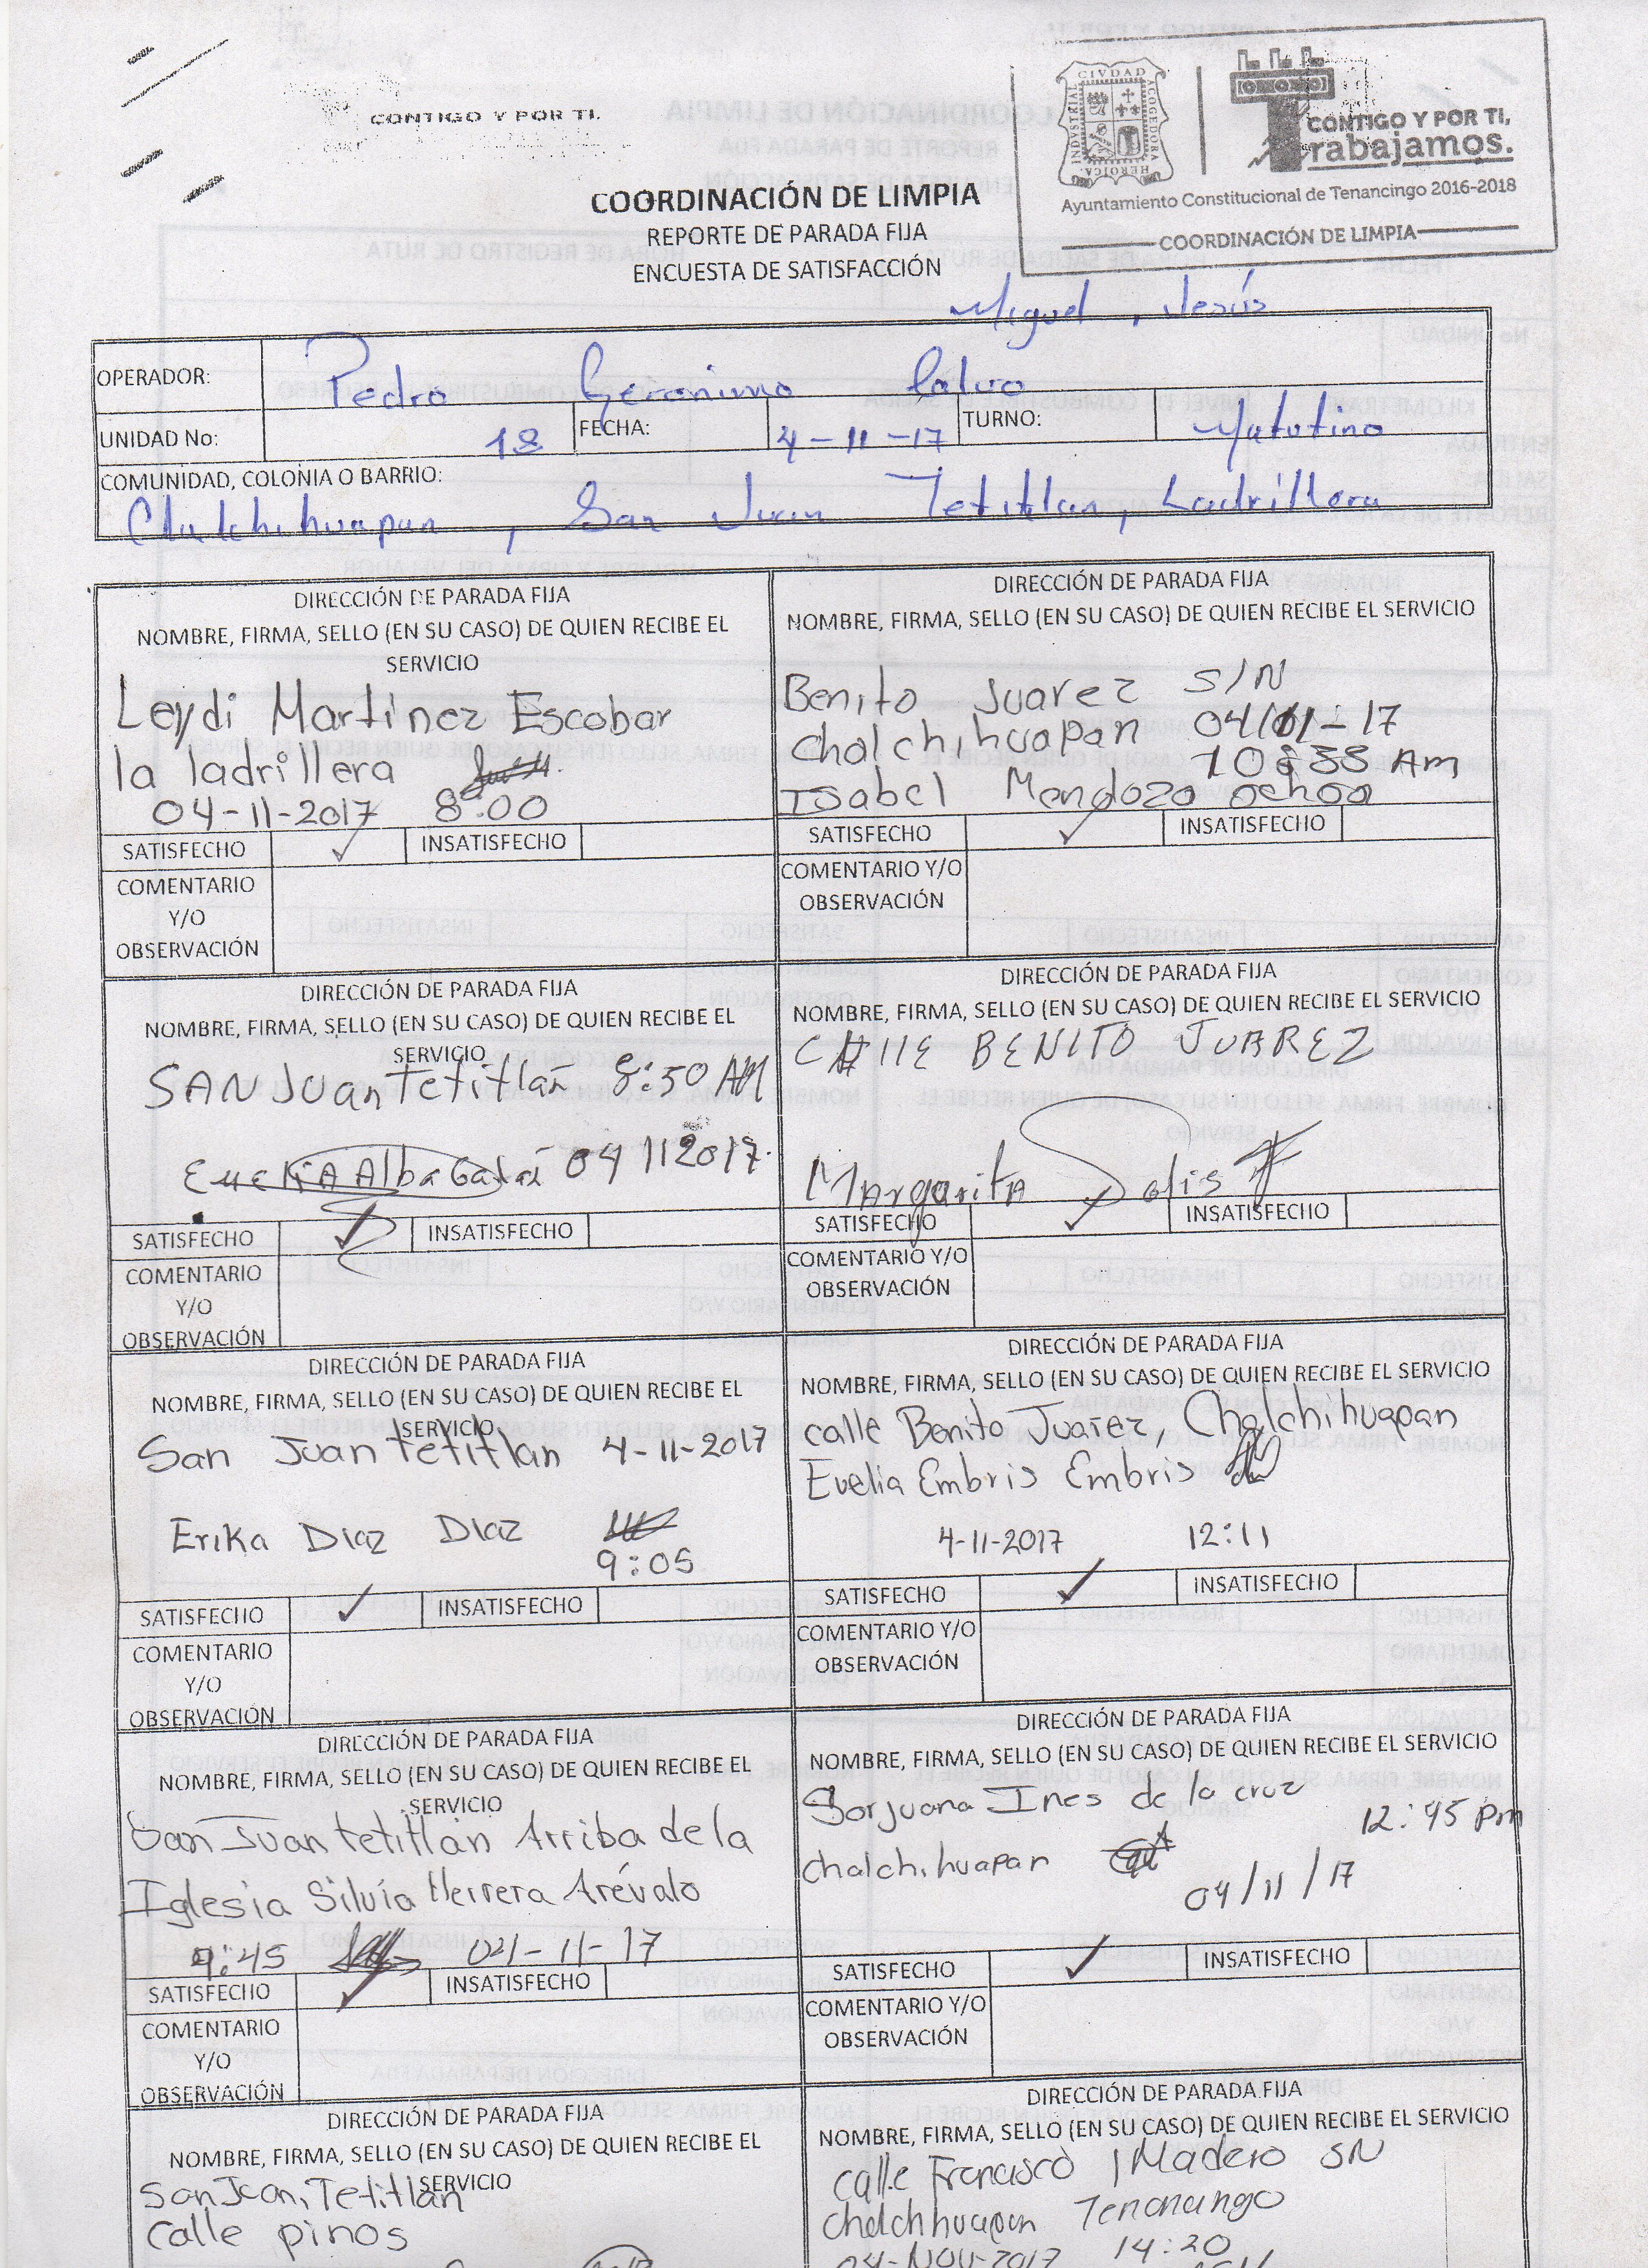 CONTIGO Y POR TI.
CIVDAD
INDVSTRIAL
ACOGEDORA
HEROICA
CONTIGO Y POR TI,
Trabajamos.
Ayuntamiento Constitucional de Tenancingo 2016-2018
COORDINACIÓN DE LIMPIA
COORDINACIÓN DE LIMPIA
REPORTE DE PARADA FIJA
ENCUESTA DE SATISFACCIÓN
Miguel, Jesús
OPERADOR: Pedro Geronimo Calvo
UNIDAD No: 18 FECHA: 4-11-17 TURNO: Matutino
COMUNIDAD, COLONIA O BARRIO:
Chalchihuapan, San Juan Tetitlan, Ladrillera
DIRECCIÓN DE PARADA FIJA
NOMBRE, FIRMA, SELLO (EN SU CASO) DE QUIEN RECIBE EL
SERVICIO
Leydi Martinez Escobar
la ladrillera
04-11-2017 8:00
SATISFECHO ✓ INSATISFECHO
COMENTARIO
Y/O
OBSERVACIÓN
DIRECCIÓN DE PARADA FIJA
NOMBRE, FIRMA, SELLO (EN SU CASO) DE QUIEN RECIBE EL SERVICIO
Benito Juarez S/N
chalchihuapan 04/11-17
Am
Isabel Mendoza ochoa
SATISFECHO ✓ INSATISFECHO
COMENTARIO Y/O
OBSERVACIÓN
DIRECCIÓN DE PARADA FIJA
NOMBRE, FIRMA, SELLO (EN SU CASO) DE QUIEN RECIBE EL
SERVICIO
SAN Juan Tetitlán 8:50 AM
Alba 04 11 2017
SATISFECHO ✓ INSATISFECHO
COMENTARIO
Y/O
OBSERVACIÓN
DIRECCIÓN DE PARADA FIJA
NOMBRE, FIRMA, SELLO (EN SU CASO) DE QUIEN RECIBE EL SERVICIO
CAllE BENITO JUAREZ
MArgaritA Solis
SATISFECHO ✓ INSATISFECHO
COMENTARIO Y/O
OBSERVACIÓN
DIRECCIÓN DE PARADA FIJA
NOMBRE, FIRMA, SELLO (EN SU CASO) DE QUIEN RECIBE EL
SERVICIO
San Juan tetitlan 4-11-2017
Erika Diaz Diaz
9:05
SATISFECHO ✓ INSATISFECHO
COMENTARIO
Y/O
OBSERVACIÓN
DIRECCIÓN DE PARADA FIJA
NOMBRE, FIRMA, SELLO (EN SU CASO) DE QUIEN RECIBE EL SERVICIO
calle Benito Juarez, Chalchihuapan
Evelia Embris Embris
4-11-2017 12:11
SATISFECHO ✓ INSATISFECHO
COMENTARIO Y/O
OBSERVACIÓN
DIRECCIÓN DE PARADA FIJA
NOMBRE, FIRMA, SELLO (EN SU CASO) DE QUIEN RECIBE EL
SERVICIO
San Juan tetitlán Arriba de la
Iglesia Silvia Herrera Arévalo
9:45 04-11-17
SATISFECHO ✓ INSATISFECHO
COMENTARIO
Y/O
OBSERVACIÓN
DIRECCIÓN DE PARADA FIJA
NOMBRE, FIRMA, SELLO (EN SU CASO) DE QUIEN RECIBE EL SERVICIO
Sorjuana Ines de la cruz
12:45 pm
chalchihuapan
04/11/17
SATISFECHO ✓ INSATISFECHO
COMENTARIO Y/O
OBSERVACIÓN
DIRECCIÓN DE PARADA FIJA
NOMBRE, FIRMA, SELLO (EN SU CASO) DE QUIEN RECIBE EL
SERVICIO
San Juan, Tetitlán
calle pinos
DIRECCIÓN DE PARADA FIJA
NOMBRE, FIRMA, SELLO (EN SU CASO) DE QUIEN RECIBE EL SERVICIO
calle Francisco I Madero SN
14:20
04-NOV-2017